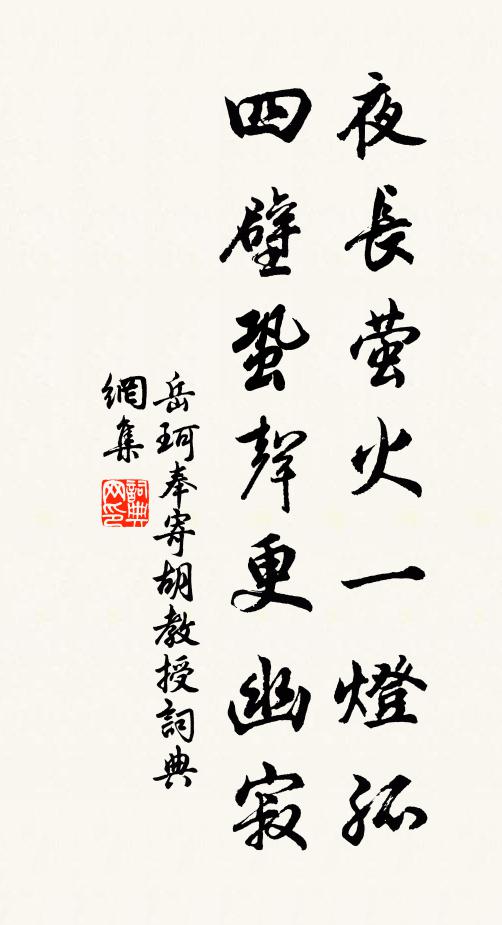 夜長萤火一燈孤
四壁蛩聲更幽寂
岳珂奉寄胡教授詞典
網集
詞典網印